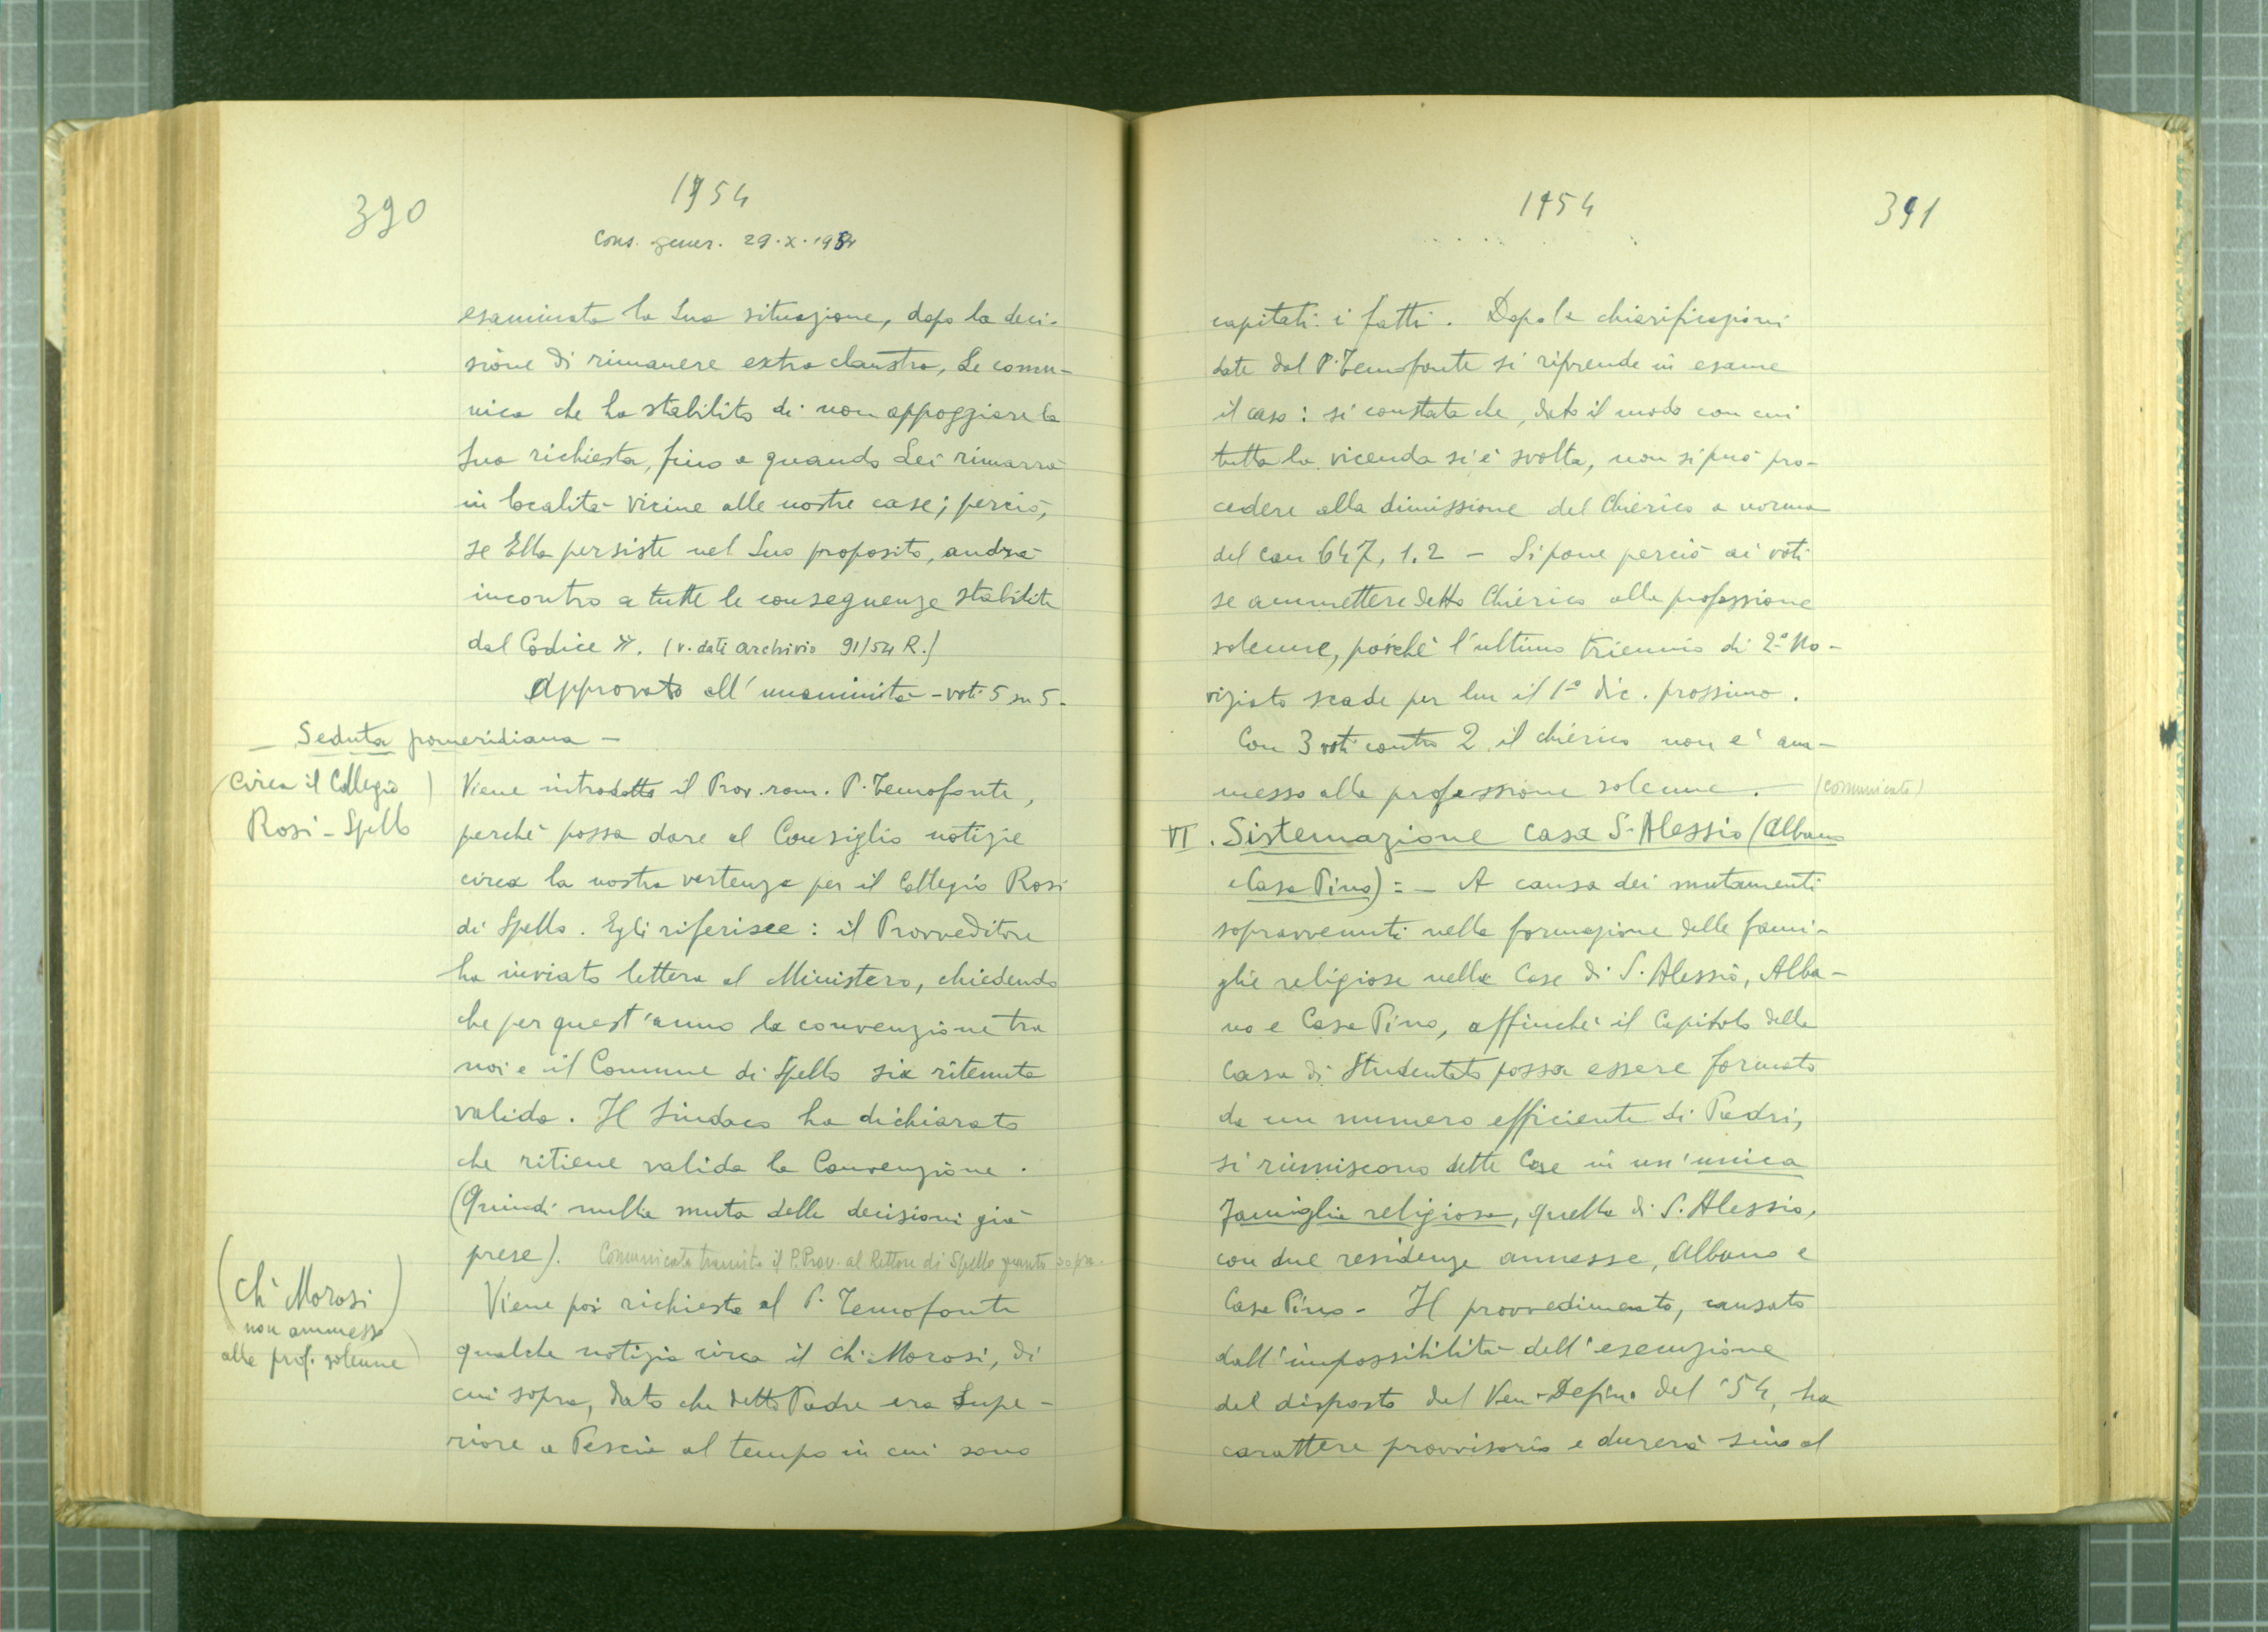 390
1954
Cons. gener. 29.X.1954
esaminata la Sua situazione, dopo la deci-
sione di rimanere extra claustra, Le comu-
nica che ha stabilito di non appoggiare la
Sua richiesta, fino a quando Lei rimarrà
in località vicine alle nostre case; perciò,
se Ella persiste nel Suo proposito, andrà
incontro a tutte le conseguenze stabilite
dal Codice ». (v. dati archivio 91/54 R.)
Approvato all'unanimità - voti 5 su 5.
- Seduta pomeridiana -
(circa il Collegio)
Rosi - Spello
Viene introdotto il Prov. rom. P. Temofonte,
perchè possa dare al Consiglio notizie
circa la nostra vertenza per il Collegio Rosi
di Spello. Egli riferisce: il Provveditore
ha inviato lettera al Ministero, chiedendo
che per quest'anno la convenzione tra
noi e il Comune di Spello sia ritenuta
valida. Il Sindaco ha dichiarato
che ritiene valida la Convenzione.
(Quindi nulla muta delle decisioni già
prese). Comunicato tramite il P. Prov. al Rettore di Spello quanto sopra.
(Ch. Morosi)
non ammesso
alla prof. solenne)
Viene poi richiesta al P. Temofonte
qualche notizia circa il Ch. Morosi, di
cui sopra, dato che detto Padre era Supe-
riore a Pescia al tempo in cui sono
1954
391
capitati i fatti. Dopo le chiarificazioni
date dal P. Temofonte si riprende in esame
il caso: si constata che, dato il modo con cui
tutta la vicenda si è svolta, non si può pro-
cedere alla dimissione del Chierico a norma
del can 647, 1.2 - Si pone perciò ai voti
se ammettere detto Chierico alla professione
solenne, poichè l'ultimo triennio di 2° No-
viziato scade per lui il 1° dic. prossimo.
Con 3 voti contro 2 il chierico non e' am-
messo alla professione solenne. - (comunicato)
VI. Sistemazione casa S. Alessio (Albano
e Casa Pino) : - A causa dei mutamenti
sopravvenuti nella formazione delle fami-
glie religiose nelle Case di S. Alessio, Alba-
no e Casa Pino, affinchè il Capitolo della
Casa di Studentato possa essere formato
da un numero efficiente di Padri,
si riuniscono dette Case in un'unica
famiglia religiosa, quella di S. Alessio,
con due residenze annesse, Albano e
Casa Pino - Il provvedimento, causato
dall'impossibilità dell'esecuzione
del disposto del Ven. Defin. del '54, ha
carattere provvisorio e durerà sino al